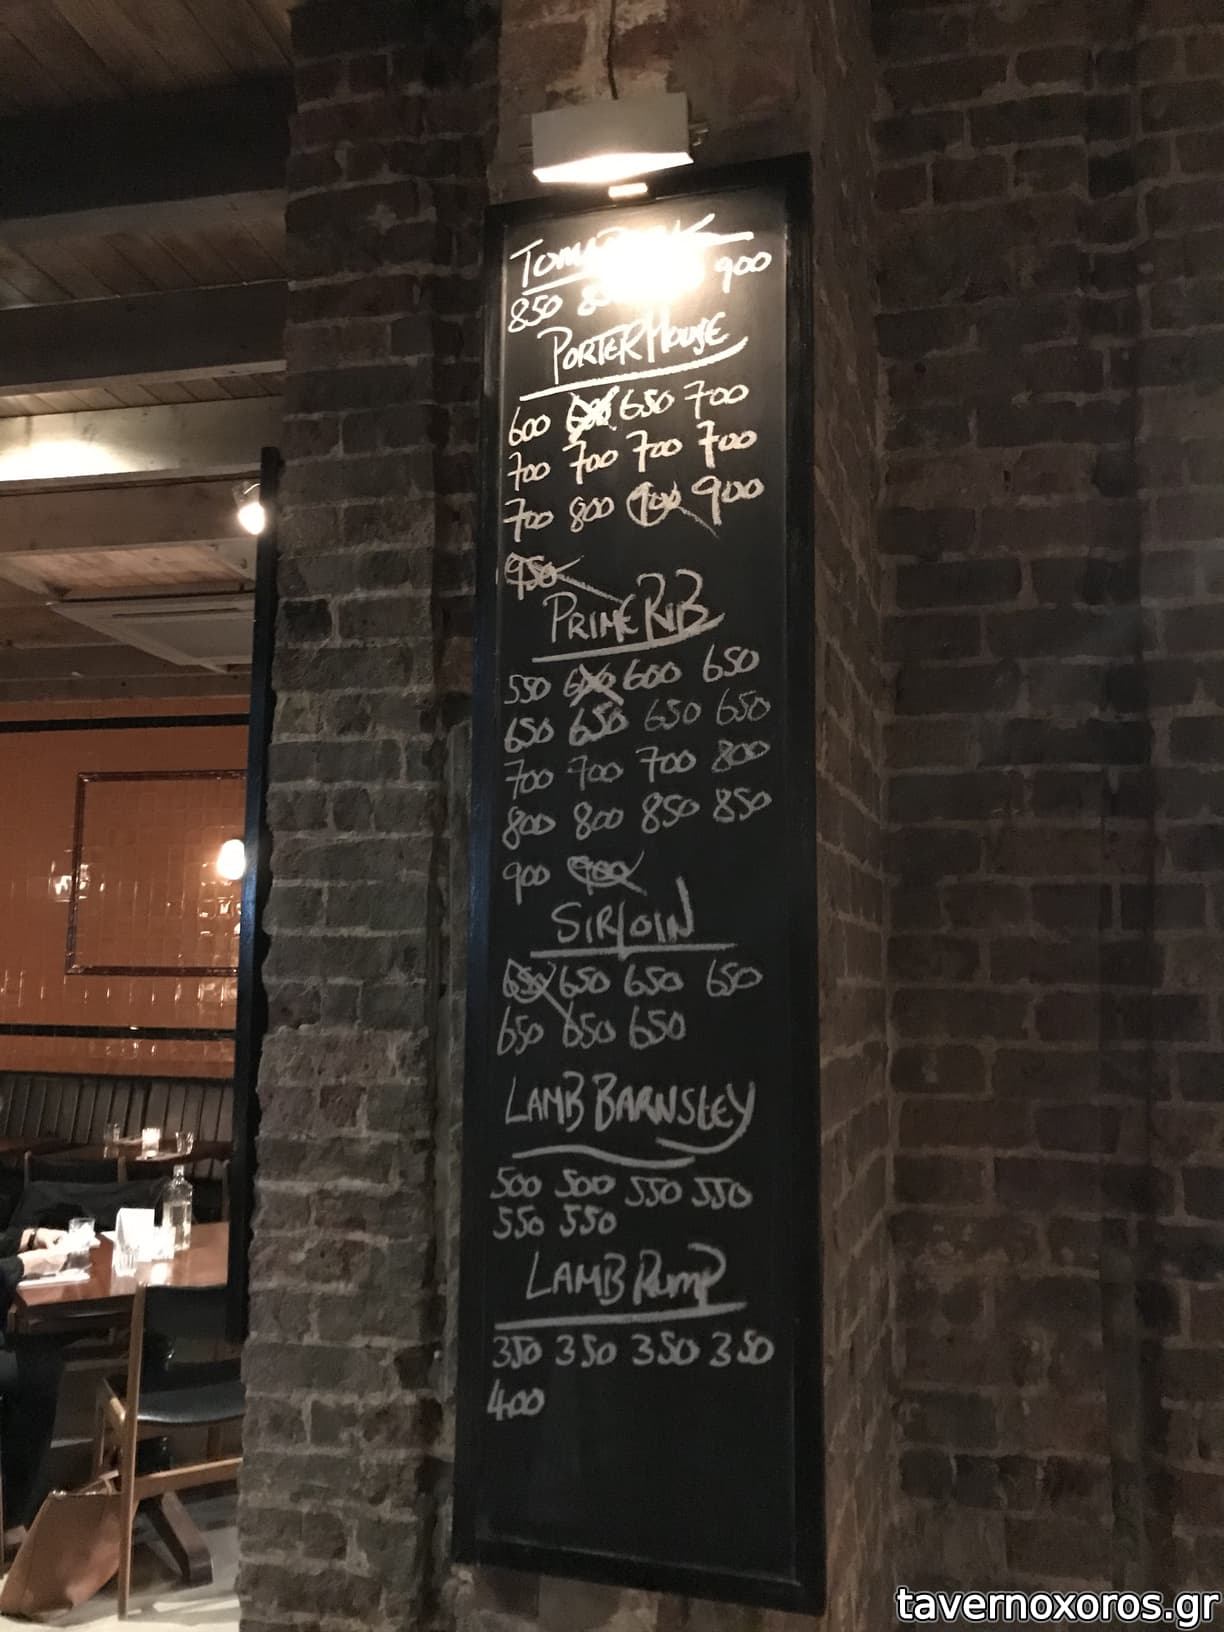 850 900
PORTERHOUSE
600 600 650 700
700 700 700 700
700 800 900 900
950
PRIME RIB
550 600 600 650
650 650 650 650
700 700 700 800
800 800 850 850
900 900
SIRLOIN
650 650 650 650
650 650 650
LAMB BARNSLEY
500 500 550 550
550 550
LAMB RUMP
350 350 350 350
400
tavernoxoros.gr